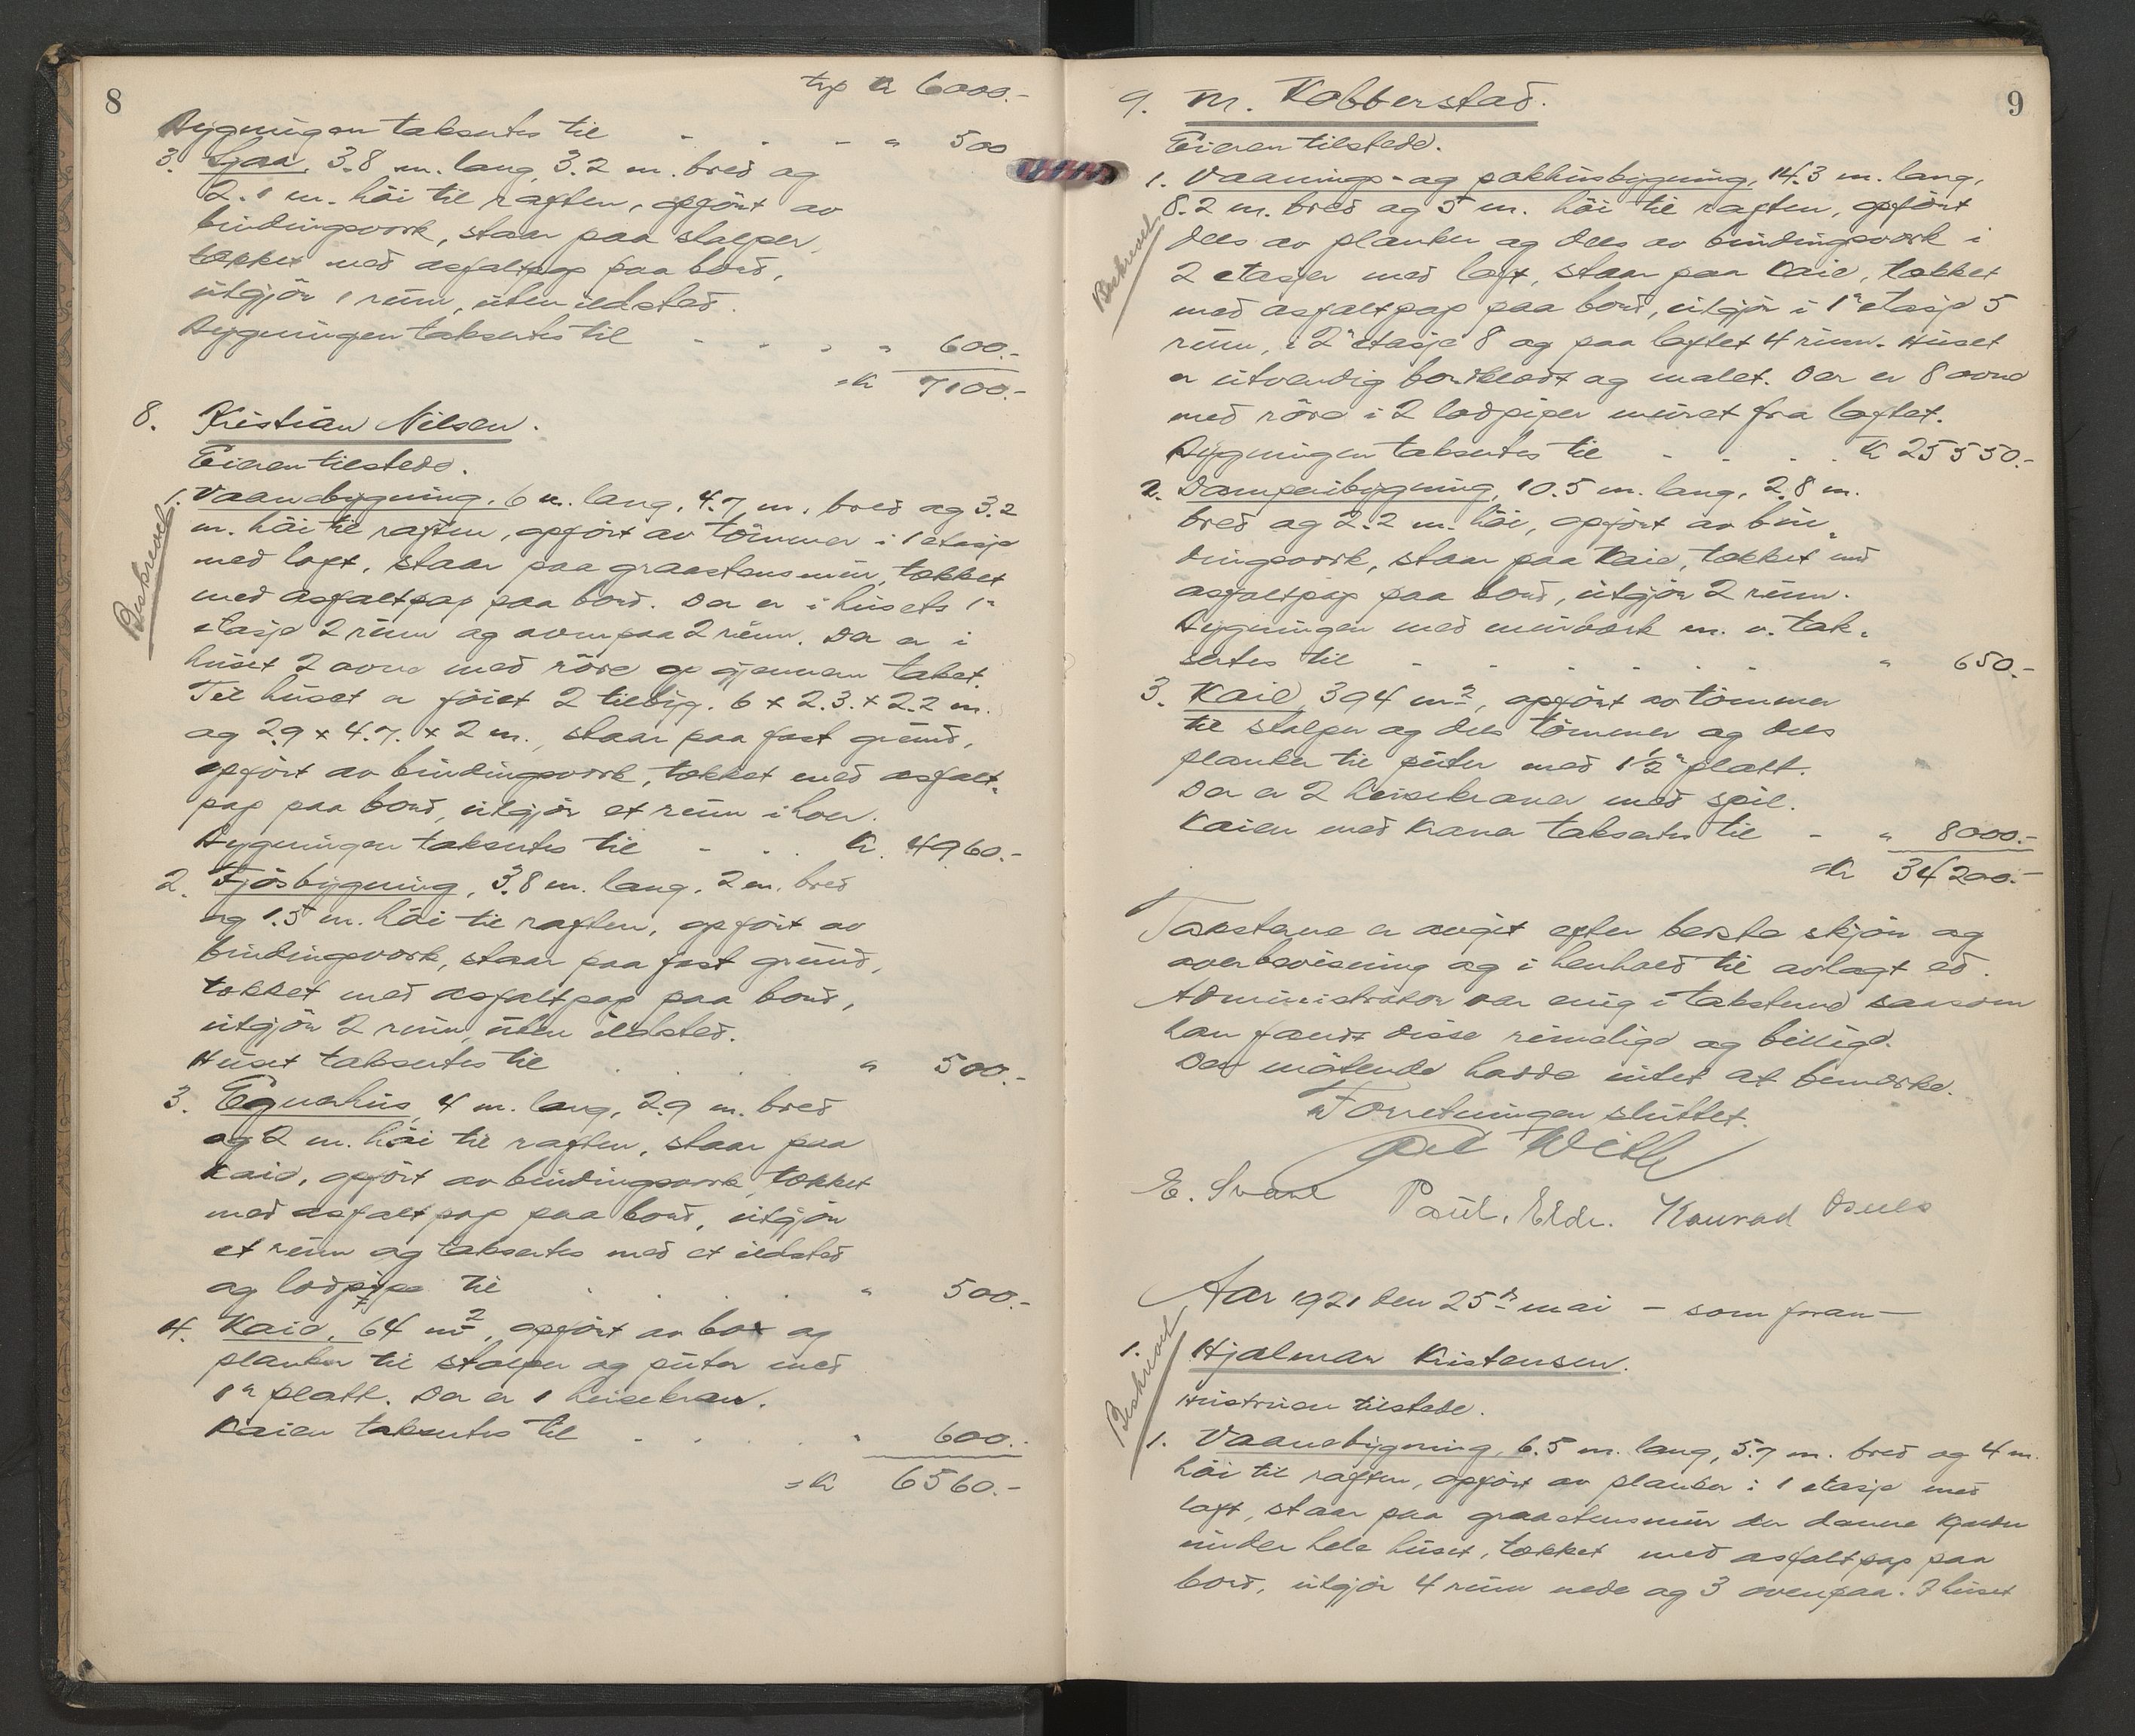 8
trp kr 6000.-
Bygningen taksertes til - - - " 500
3. Sjaa, 3.8 m. lang, 3.2 m. bred og
2.1 m. höi til raften, opfört av
bindingsverk, staar paa stolper,
tækket med asfaltpap paa bord,
utgjör 1 rum, uten ildsted.
Bygningen taksertes til - - - " 600.-
=Kr 7100.-
8. Kristian Nilsen.
Eieren tilstede.
Beskrevet
1. Vaanebygning, 6 m. lang, 4.7 m. bred og 3.2
m. höi til raften, opfört av tömmer i 1 etasje
med loft, staar paa graastensmur, tækket
med asfaltpap paa bord. Der er i husets 1ste
etasje 2 rum og ovenpaa 2 rum. Der er i
huset 2 ovne med röre gjennem taket.
Til huset er föiet 2 tilbyg. 6 x 2.3. x 2.2 m.
og 2.9 x 4.7. x 2 m., staar paa fast grund,
opfört av bindingsverk, tækket med asfalt-
pap paa bord, utgjör et rum i hver.
Bygningen taksertes til - - . Kr. 4960.-
2. Fjösbygning, 3.8 m. lang, 2 m. bred
og 1.5 m. höi til raften, opfört av
bindingsverk, staar paa fast grund,
tækket med asfaltpap paa bord,
utgjör 2 rum, uten ildsted.
Huset taksertes til . . . " 500.-
3. Egnerhus, 4 m. lang, 2.9 m. bred
og 2 m. höi til raften, staar paa
kaie, opfört av bindingsverk, tækket
med asfaltpap paa bord, utgjör
et rum og taksertes med et ildsted
og lodpipe til . . . " 500.-
4. Kaie, 64 m2, opfört av box og
planker til stolper og puter med
1" platt. Der er 1 heisekran.
Kaien taksertes til . . . . " 600.-
=Kr 6560.-
9
9. M. Kobberstad.
Eieren tilstede.
Beskrevet
1. Vaanings- og pakhusbygning, 14.3 m. lang,
8.2 m. bred og 5 m. höi til raften, opfört
dels av planker og dels av bindingsverk i
2 etasjer med loft, staar paa kaie, tækket
med asfaltpap paa bord, utgjör i 1ste etasje 5
rum, i 2n etasje 8 og paa loftet 4 rum. Huset
er utvendig bordklædt og malet. Der er 8 ovne
med röre i 2 lodpiper muret fra loftet.
Bygningen taksertes til - - . . Kr 25550.-
2. Damperibygning, 10.5 m. lang, 2.8 m.
bred og 2.2 m. höi, opfört av bin-
dingsverk, staar paa kaie, tækket med
asfaltpap paa bord, utgjör 2 rum.
Bygningen med murverk m. v. tak-
sertes til - - - - - - " 650.-
3. Kaie, 394 m2, opfört av tömmer
til stolper og dels tömmer og dels
planker til puter med 1 1/2" platt.
Der er 2 heisekraner med spil.
Kaien med kraner taksertes til - " 8000.-
=Kr 34200.-
Taksterne er avgit efter beste skjön og
overbevisning og i henhold til avlagt ed.
Administrator var enig i taksterne saasom
han fandt disse rimelige og billige.
De mötende hadde intet at bemerke.
Forretningen sluttet.
E. Svane Paul. Eldr. Konrad
Aar 1921 den 25de mai - som foran -
Beskrevet
1. Hjalmar Kristensen.
Hustruen tilstede.
1. Vaanebygning, 6.5 m. lang, 5.7 m. bred og 4 m.
höi til raften, opfört av planker i 1 etasje med
loft, staar paa graastensmur der danner kjelder
under hele huset, tækket med asfaltpap paa
bord, utgjör 4 rum nede og 3 ovenpaa. I huset